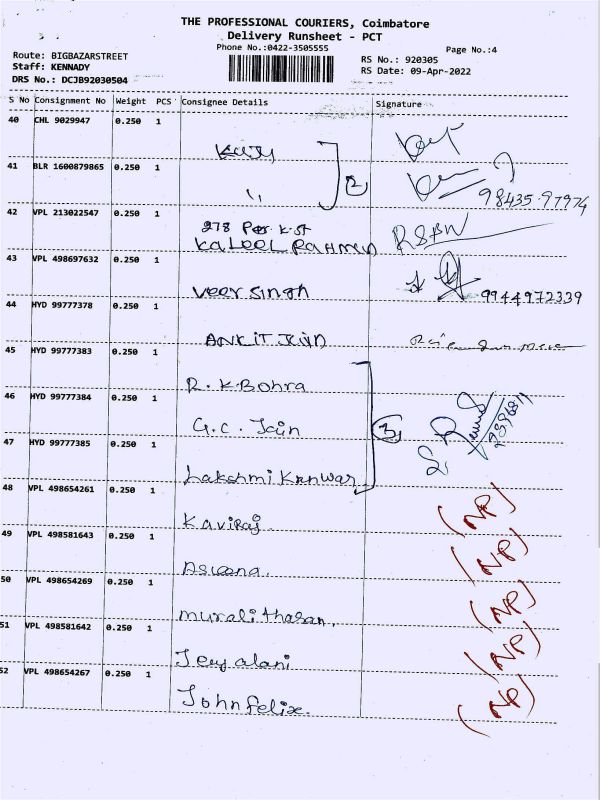 THE PROFESSIONAL COURIERS, Coimbatore
Delivery Runsheet - PCT
Phone No.:0422-3505555
Page No.:4
Route: BIGBAZARSTREET
Staff: KENNADY
DRS No.: DCJB92030504
RS No.: 920305
RS Date: 09-Apr-2022
S No Consignment No Weight PCS Consignee Details Signature
40 CHL 9029947 0.250 1
41 BLR 1600879865 0.250 1 " 2
98435 97974
42 VPL 213022547 0.250 1 278 Per K.St
Kaleel Rahman
43 VPL 498697632 0.250 1 Veer Singh 9944972339
44 HYD 99777378 0.250 1 ANKIT JAIN
45 HYD 99777383 0.250 1 R.K Bohra
46 HYD 99777384 0.250 1 G.C. Jain 3
47 HYD 99777385 0.250 1 Lakshmi Kanwar
48 VPL 498654261 0.250 1 Kaviraj (NP)
49 VPL 498581643 0.250 1 (NP)
50 VPL 498654269 0.250 1 muralitharan, (NP)
51 VPL 498581642 0.250 1 (NP)
52 VPL 498654267 0.250 1 John felix. (NP)